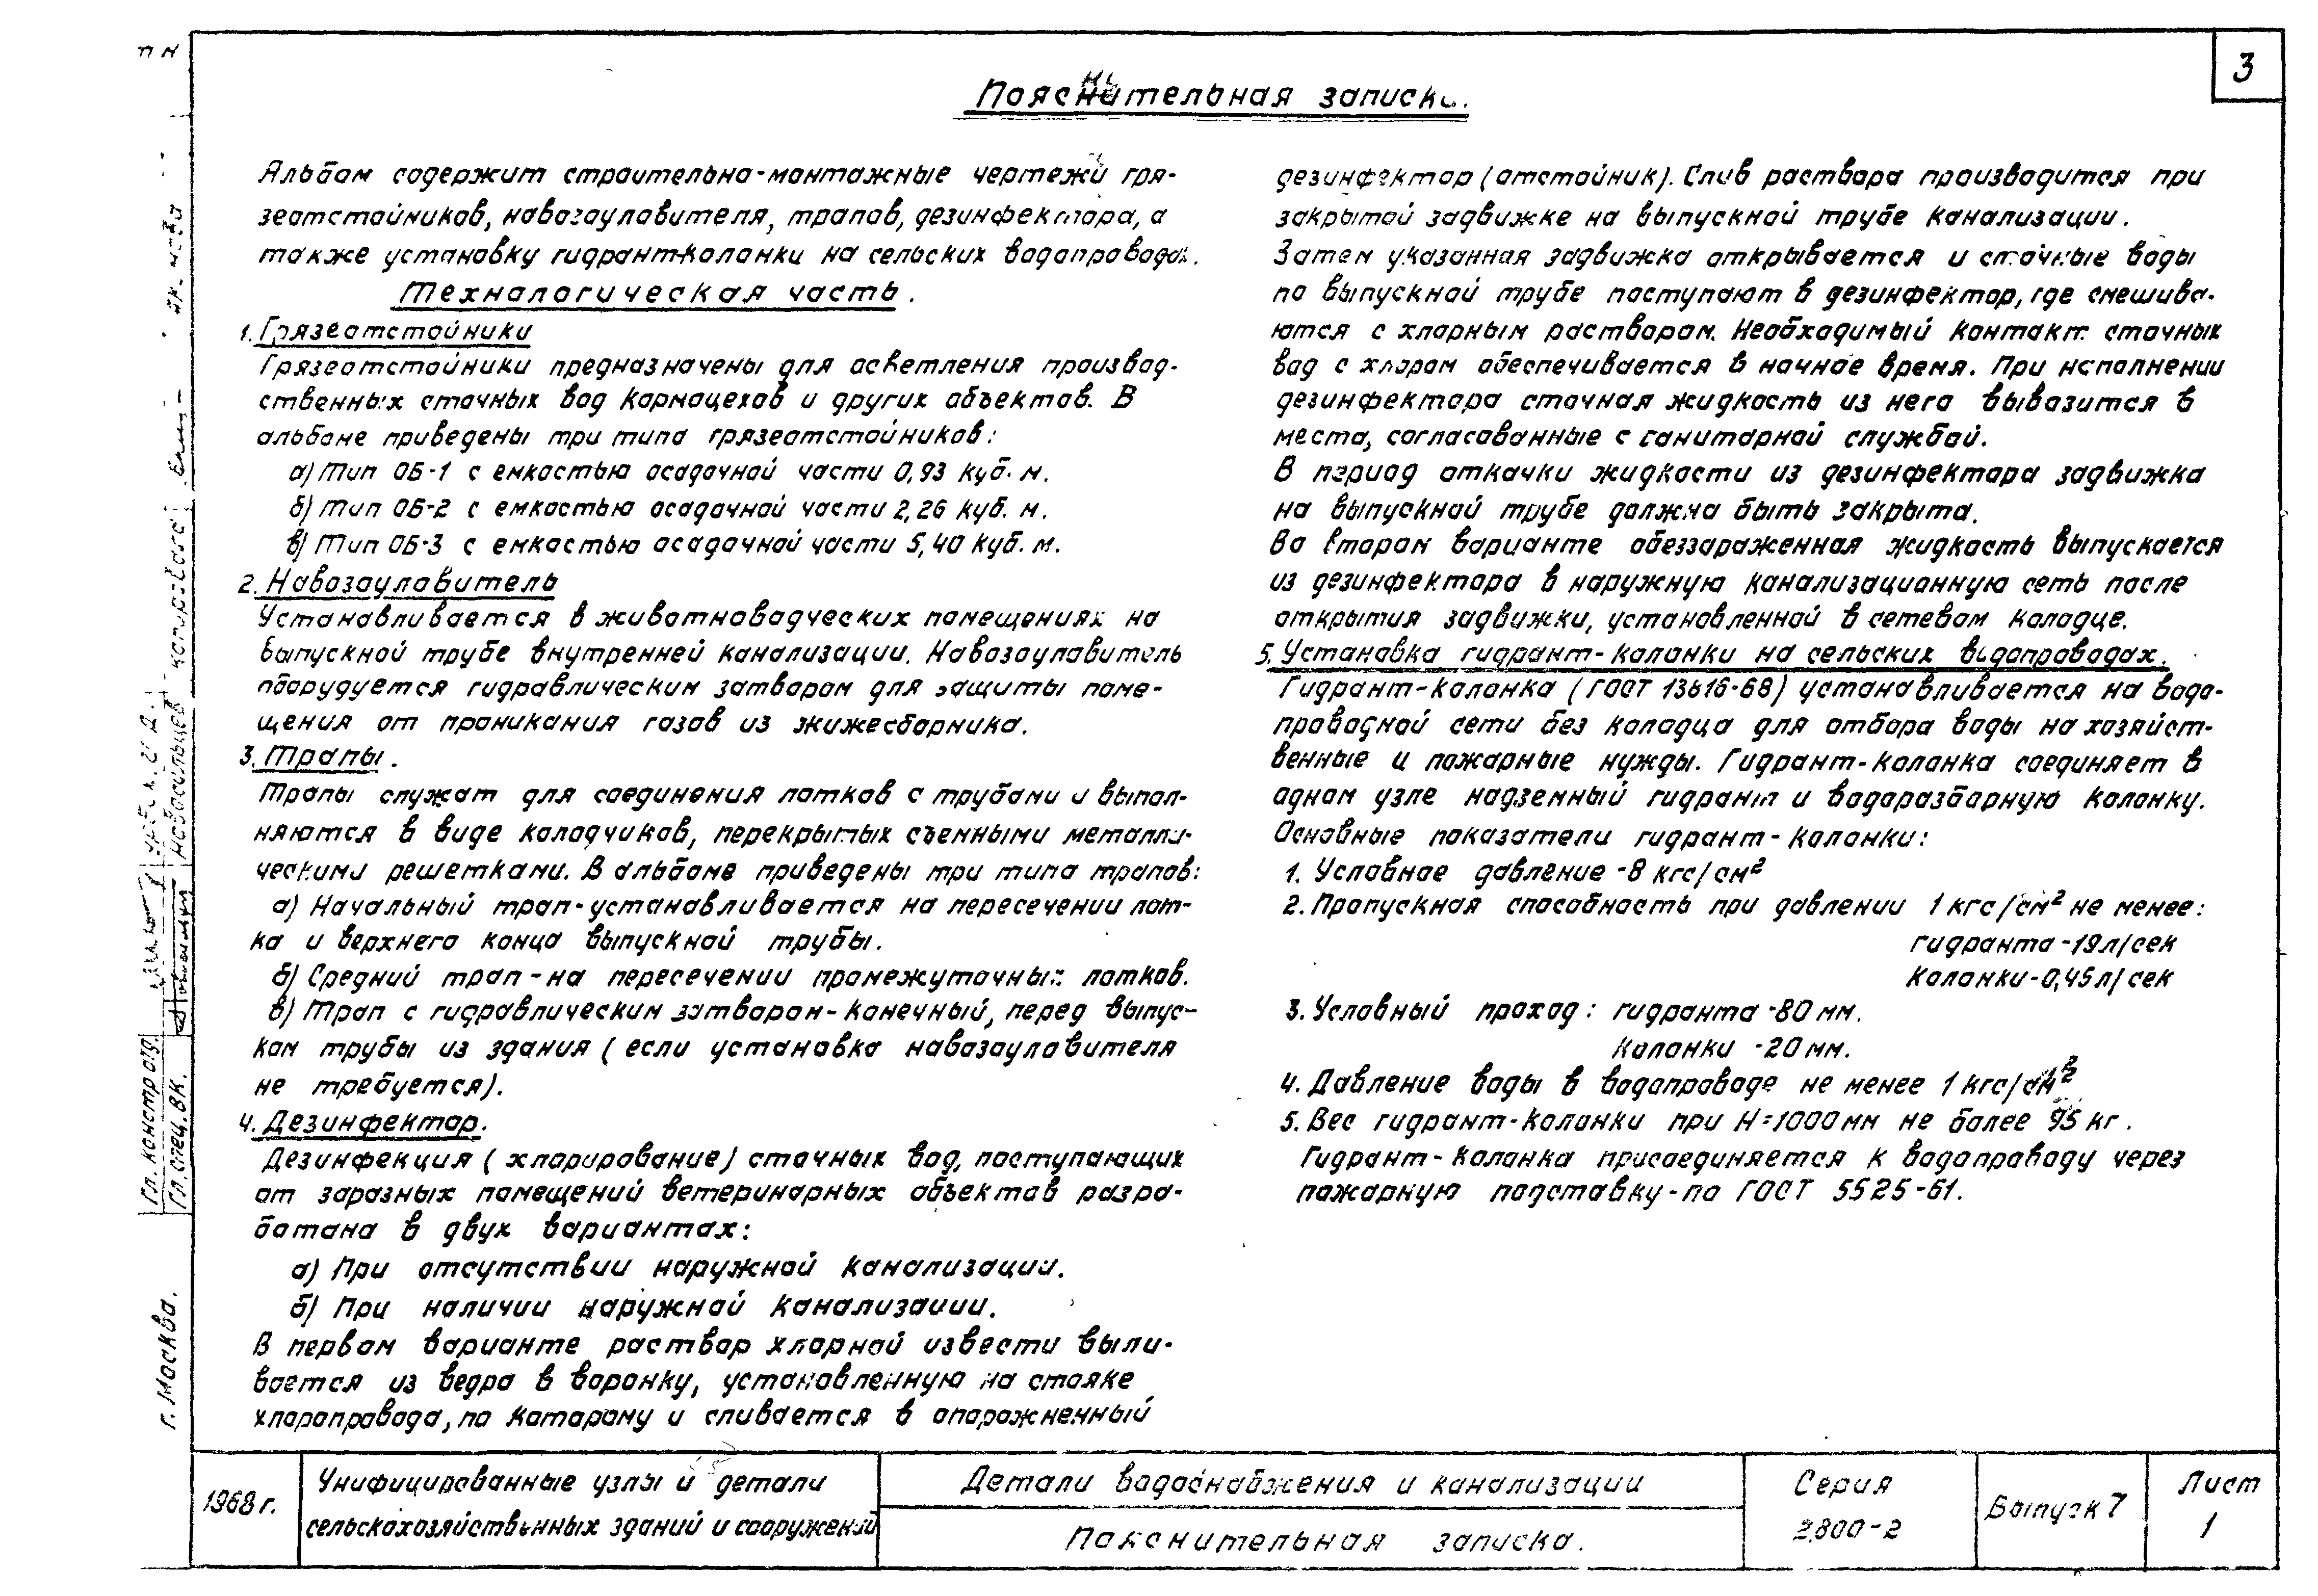 3
Пояснительная записка.
Альбом содержит строительно-монтажные чертежи гря-
зеотстойников, навозоуловителя, трапов, дезинфектора, а
также установку гидрант-колонки на сельских водопроводах.
Технологическая часть.
1. Грязеотстойники
Грязеотстойники предназначены для осветления производ-
ственных сточных вод кормоцехов и других объектов. В
альбоме приведены три типа грязеотстойников:
а) Тип ОБ-1 с емкостью осадочной части 0,93 куб. м.
б) Тип ОБ-2 с емкостью осадочной части 2,26 куб. м.
в) Тип ОБ-3 с емкостью осадочной части 5,40 куб. м.
2. Навозоуловитель
Устанавливается в животноводческих помещениях на
выпускной трубе внутренней канализации. Навозоуловитель
оборудуется гидравлическим затвором для защиты поме-
щения от проникания газов из жижесборника.
3. Трапы.
Трапы служат для соединения лотков с трубами и выпол-
няются в виде колодчиков, перекрытых съемными металли-
ческими решетками. В альбоме приведены три типа трапов:
а) Начальный трап-устанавливается на пересечении лот-
ка и верхнего конца выпускной трубы.
б) Средний трап-на пересечении промежуточных лотков.
в) Трап с гидравлическим затвором-конечный, перед выпус-
ком трубы из здания (если установка навозоуловителя
не требуется).
4. Дезинфектор.
Дезинфекция (хлорирование) сточных вод, поступающих
от заразных помещений ветеринарных объектов разра-
ботана в двух вариантах:
а) При отсутствии наружной канализации.
б) При наличии наружной канализации.
В первом варианте раствор хлорной извести выли-
вается из ведра в воронку, установленную на стояке
хлоропровода, по которому и сливается в опорожненный
дезинфектор (отстойник). Слив раствора производится при
закрытой задвижке на выпускной трубе канализации.
Затем указанная задвижка открывается и сточные воды
по выпускной трубе поступают в дезинфектор, где смешива-
ются с хлорным раствором. Необходимый контакт сточных
вод с хлором обеспечивается в ночное время. При исполнении
дезинфектора сточная жидкость из него вывозится в
места, согласованные с санитарной службой.
В период откачки жидкости из дезинфектора задвижка
на выпускной трубе должна быть закрыта.
Во втором варианте обеззараженная жидкость выпускается
из дезинфектора в наружную канализационную сеть после
открытия задвижки, установленной в сетевом колодце.
5. Установка гидрант-колонки на сельских водопроводах.
Гидрант-колонка (ГОСТ 13816-68) устанавливается на водо-
проводной сети без колодца для отбора воды на хозяйст-
венные и пожарные нужды. Гидрант-колонка соединяет в
одном узле надземный гидрант и водоразборную колонку.
Основные показатели гидрант-колонки:
1. Условное давление -8 кгс/см²
2. Пропускная способность при давлении 1 кгс/см² не менее:
гидранта-19л/сек
колонки-0,45л/сек
3. Условный проход: гидранта -80 мм.
колонки -20 мм.
4. Давление воды в водопроводе не менее 1 кгс/см²
5. Вес гидрант-колонки при Н=1000мм не более 95 кг.
Гидрант-колонка присоединяется к водопроводу через
пожарную подставку-по ГОСТ 5525-61.
Гл. констр отд.
Гл. спец. ВК.
г. Москва.
1968 г.
Унифицированные узлы и детали
сельскохозяйственных зданий и сооружений
Детали водоснабжения и канализации
Пояснительная записка.
Серия
2.800-2
Выпуск 7
Лист
1